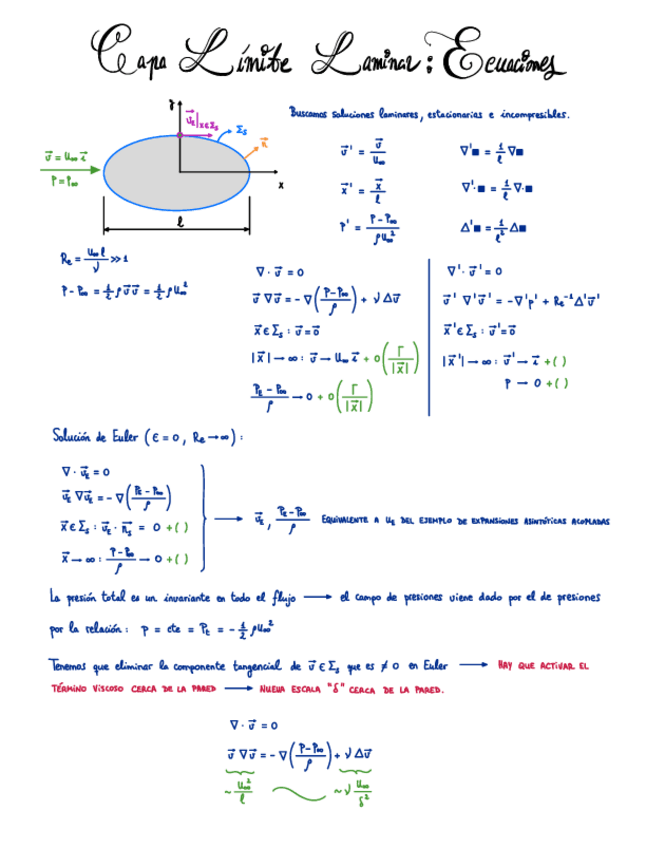 Capa Límite Laminar: Ecuaciones
Buscamos soluciones laminares, estacionarias e incompresibles.
Y
v⃗_E|x∈Σs
Σs
n⃗
v⃗ = U∞ i⃗
P = P∞
x
l
v⃗' = v⃗/U∞
∇'■ = 1/l ∇■
x⃗' = x⃗/l
∇'·■ = 1/l ∇·■
P' = (P-P∞)/(ρU∞²)
Δ'■ = 1/l² Δ■
Re = U∞ l/ν ≫ 1
P-P∞ = 1/2 ρ v⃗ v⃗ = 1/2 ρ U∞²
∇· v⃗ = 0
v⃗ ∇v⃗ = -∇((P-P∞)/ρ) + ν Δv⃗
x⃗ ∈ Σs : v⃗ = 0⃗
|x⃗| → ∞ : v⃗ → U∞ i⃗ + O(Γ/|x⃗|)
(P_E - P∞)/ρ → 0 + O(Γ/|x⃗|)
∇'· v⃗' = 0
v⃗' ∇'v⃗' = -∇'p' + Re⁻¹ Δ'v⃗'
x⃗' ∈ Σs : v⃗' = 0⃗
|x⃗'| → ∞ : v⃗' → i⃗ + ( )
P → 0 + ( )
Solución de Euler (ε = 0, Re → ∞) :
∇· v⃗_E = 0
v⃗_E ∇v⃗_E = -∇((P_E - P∞)/ρ)
x⃗ ∈ Σs : v⃗_E · n⃗_s = 0 + ( )
x⃗ → ∞ : (P-P∞)/ρ → 0 + ( )
→ v⃗_E , (P_E - P∞)/ρ EQUIVALENTE A U_E DEL EJEMPLO DE EXPANSIONES ASINTÓTICAS ACOPLADAS
La presión total es un invariante en todo el flujo → el campo de presiones viene dado por el de presiones
por la relación : p = cte = P_t = - 1/2 ρU∞²
Tenemos que eliminar la componente tangencial de v⃗ ∈ Σs que es ≠ 0 en Euler → HAY QUE ACTIVAR EL
TÉRMINO VISCOSO CERCA DE LA PARED → NUEVA ESCALA "δ" CERCA DE LA PARED.
∇· v⃗ = 0
v⃗ ∇v⃗ = -∇((P-P∞)/ρ) + ν Δv⃗
~ U∞²/l ~ ν U∞/δ²